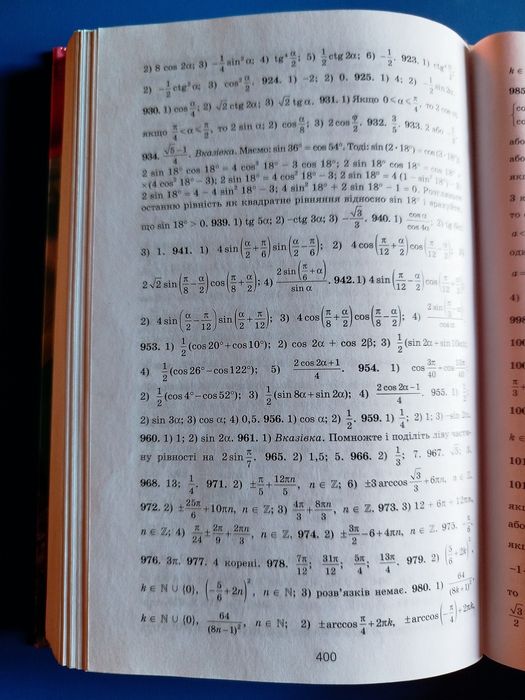 2) 8 cos 2α; 3) −1/4 sin² α; 4) tg⁴ α/2; 5) 1/2 ctg 2α; 6) −1/2. 923. 1)
2) −1/2 ctg² α; 3) cos² α/2. 924. 1) −2; 2) 0. 925. 1) 4; 2)
930. 1) cos α/4; 2) √2 ctg 2α; 3) √2 tg α. 931. 1) Якщо 0 < α ≤ π/4, то 2 cos α;
якщо π/4 < α ≤ π/2, то 2 sin α; 2) cos α/8; 3) 2 cos φ/2. 932. 3/5. 933. 2 або
934. (√5−1)/4. Вказівка. Маємо: sin 36° = cos 54°. Тоді: sin (2 · 18°) = cos (3 · 18°);
2 sin 18° cos 18° = 4 cos³ 18° − 3 cos 18°; 2 sin 18° cos 18° = cos 18° ×
×(4 cos² 18° − 3); 2 sin 18° = 4 cos² 18° − 3; 2 sin 18° = 4 (1 − sin² 18°) − 3;
2 sin 18° = 4 − 4 sin² 18° − 3; 4 sin² 18° + 2 sin 18° − 1 = 0.
останню рівність як квадратне рівняння відносно sin 18° і врахуйте,
що sin 18° > 0. 939. 1) tg 5α; 2) −ctg 3α; 3) −√3/3. 940. 1) cos α/cos 4α; 2)
3) 1. 941. 1) 4 sin(α/2 + π/6) sin(α/2 − π/6); 2) 4 cos(π/12 + α/2) cos(π/12 − α/2);
2√2 sin(π/8 − α/2) cos(π/8 + α/2); 4) 2 sin(π/6 + α)/sin α. 942. 1) 4 sin(π/12 − α/2) cos
2) 4 sin(α/2 − π/12) sin(α/2 + π/12); 3) 4 cos(π/8 + α/2) cos(π/8 − α/2); 4)
953. 1) 1/2 (cos 20° + cos 10°); 2) cos 2α + cos 2β; 3) 1/2 (sin 2α + sin 10α);
4) 1/2 (cos 26° − cos 122°); 5) (2 cos 2α + 1)/4. 954. 1) cos 3π/40 − cos
2) 1/2 (cos 4° − cos 52°); 3) 1/2 (sin 8α + sin 2α); 4) (2 cos 2α − 1)/4. 955. 1)
2) sin 3α; 3) cos α; 4) 0,5. 956. 1) cos α; 2) 1/2. 959. 1) 1/4; 2) 1; 3)
960. 1) 1; 2) sin 2α. 961. 1) Вказівка. Помножте і поділіть ліву части-
ну рівності на 2 sin π/7. 965. 2) 1,5; 5. 966. 2) 1/3; 7. 967. √5;
968. 13; 1/4. 971. 2) ±π/5 + 12πn/5, n ∈ ℤ; 6) ±3 arccos √3/3 + 6πn, n ∈ ℤ.
972. 2) ±25π/6 + 10πn, n ∈ ℤ; 3) 4π/3 + 8πn/3, n ∈ ℤ. 973. 3) 12 + 6π + 12πn,
n ∈ ℤ; 4) π/24 ± 2π/9 + 2πn/3, n ∈ ℤ. 974. 2) ±3π/2 − 6 + 4πn, n ∈ ℤ. 975.
976. 3π. 977. 4 корені. 978. 7π/12; 31π/12; 5π/4; 13π/4. 979. 2) (5/6 + 2k)²,
k ∈ ℕ ∪ {0}, (−5/6 + 2n)², n ∈ ℕ; 3) розв'язків немає. 980. 1) 64/(8k+1)²,
k ∈ ℕ ∪ {0}, 64/(8n−1)², n ∈ ℕ; 2) ±arccos π/4 + 2πk, ±arccos(−π/4) + 2πk,
400